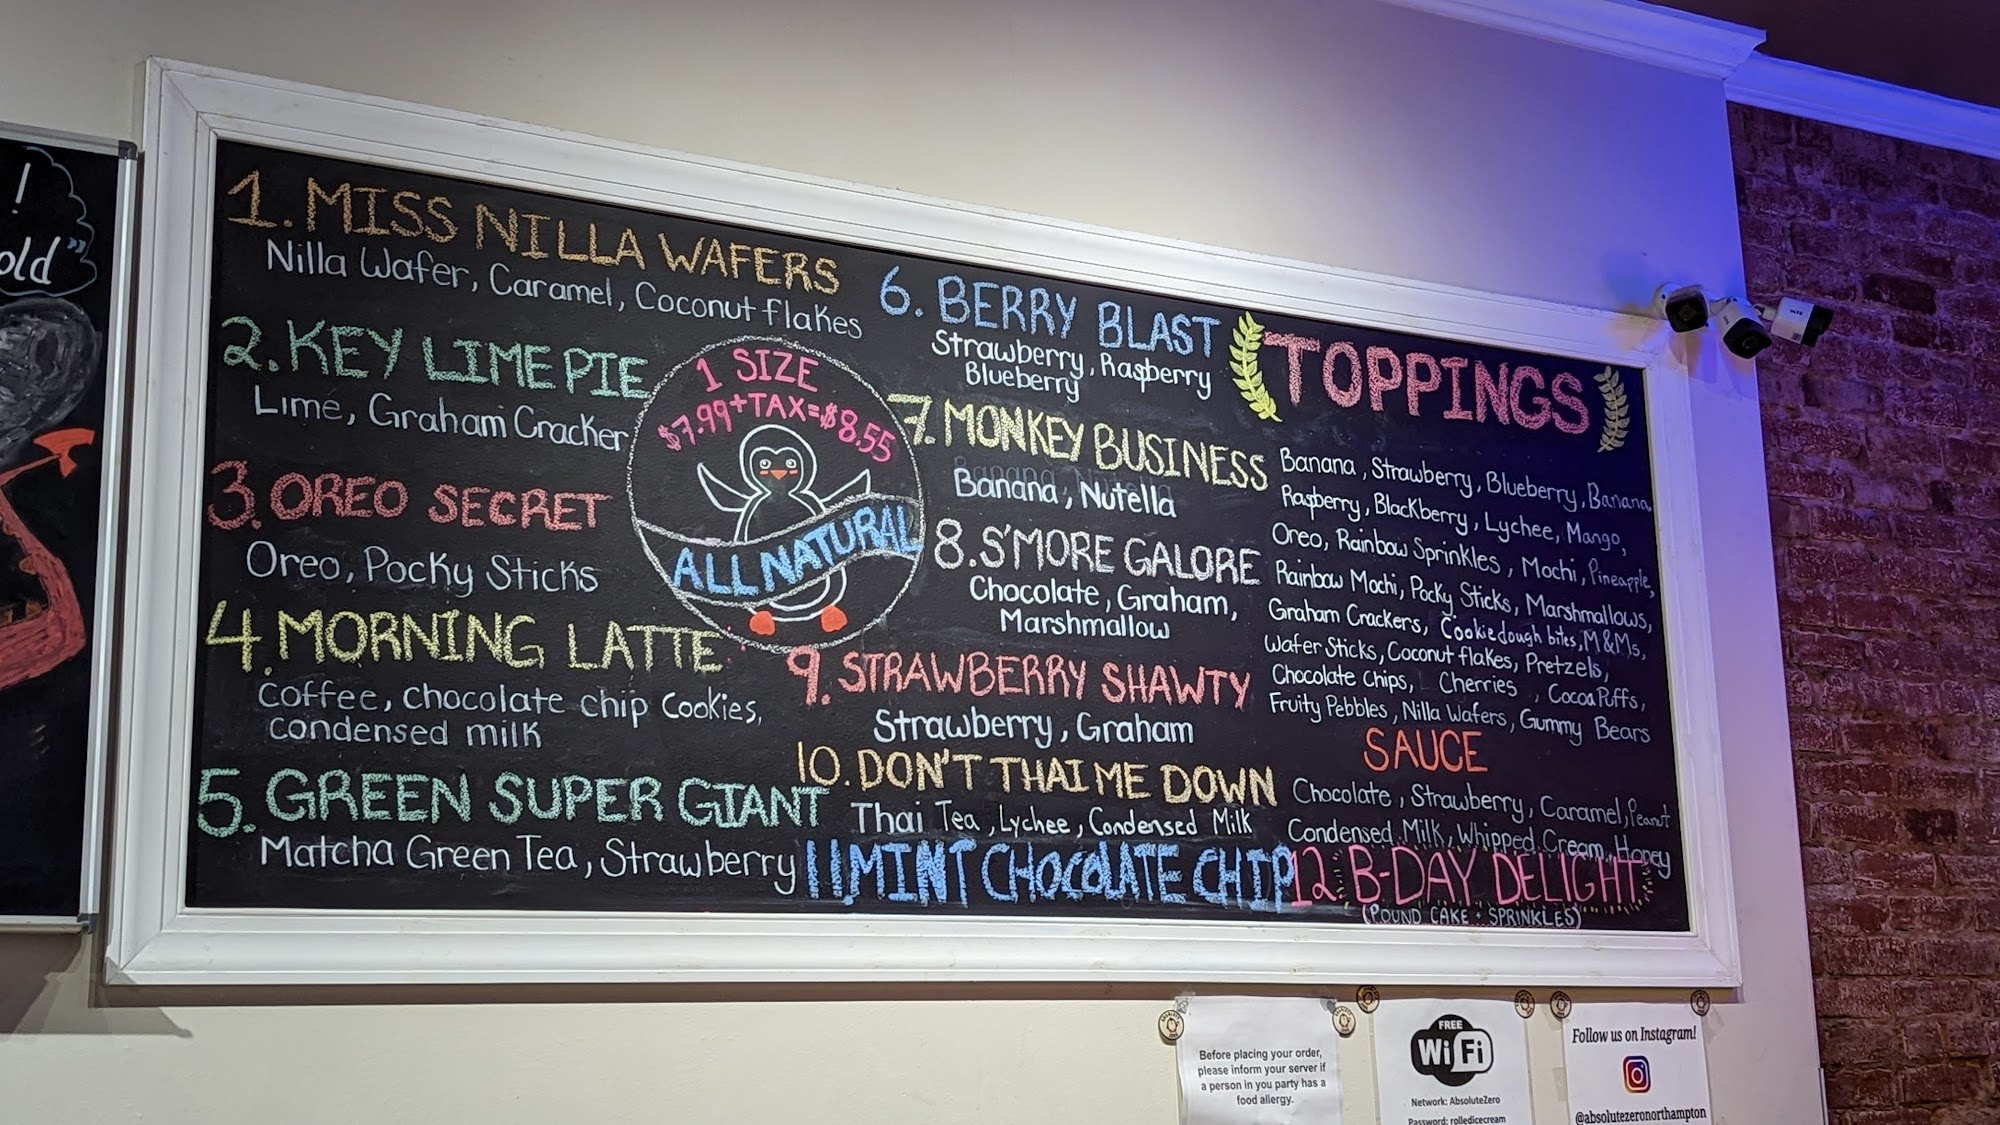 !
old"
1. MISS NILLA WAFERS
Nilla Wafer, Caramel, Coconut flakes
2. KEY LIME PIE
Lime, Graham Cracker
3. OREO SECRET
Oreo, Pocky Sticks
4. MORNING LATTE
Coffee, chocolate chip Cookies,
condensed milk
5. GREEN SUPER GIANT
Matcha Green Tea, Strawberry
1 SIZE
$7.99+TAX=$8.55
ALL NATURAL
6. BERRY BLAST
Strawberry, Raspberry
Blueberry
7. MONKEY BUSINESS
Banana, Nutella
8. S'MORE GALORE
Chocolate, Graham,
Marshmallow
9. STRAWBERRY SHAWTY
Strawberry, Graham
10. DON'T THAI ME DOWN
Thai Tea, Lychee, Condensed Milk
11. MINT CHOCOLATE CHIP
TOPPINGS
Banana, Strawberry, Blueberry, Banana,
Raspberry, Blackberry, Lychee, Mango,
Oreo, Rainbow Sprinkles, Mochi, Pineapple,
Rainbow Mochi, Pocky Sticks, Marshmallows,
Graham Crackers, Cookie dough bites, M&Ms,
Wafer Sticks, Coconut flakes, Pretzels,
Chocolate Chips, Cherries, Cocoa Puffs,
Fruity Pebbles, Nilla Wafers, Gummy Bears
SAUCE
Chocolate, Strawberry, Caramel, Peanut
Condensed Milk, Whipped Cream, Honey
12. B-DAY DELIGHT
(POUND CAKE + SPRINKLES)
Before placing your order,
please inform your server if
a person in you party has a
food allergy.
FREE
Wi Fi
Network: AbsoluteZero
Password: rolledicecream
Follow us on Instagram!
@absolutezeronorthampton